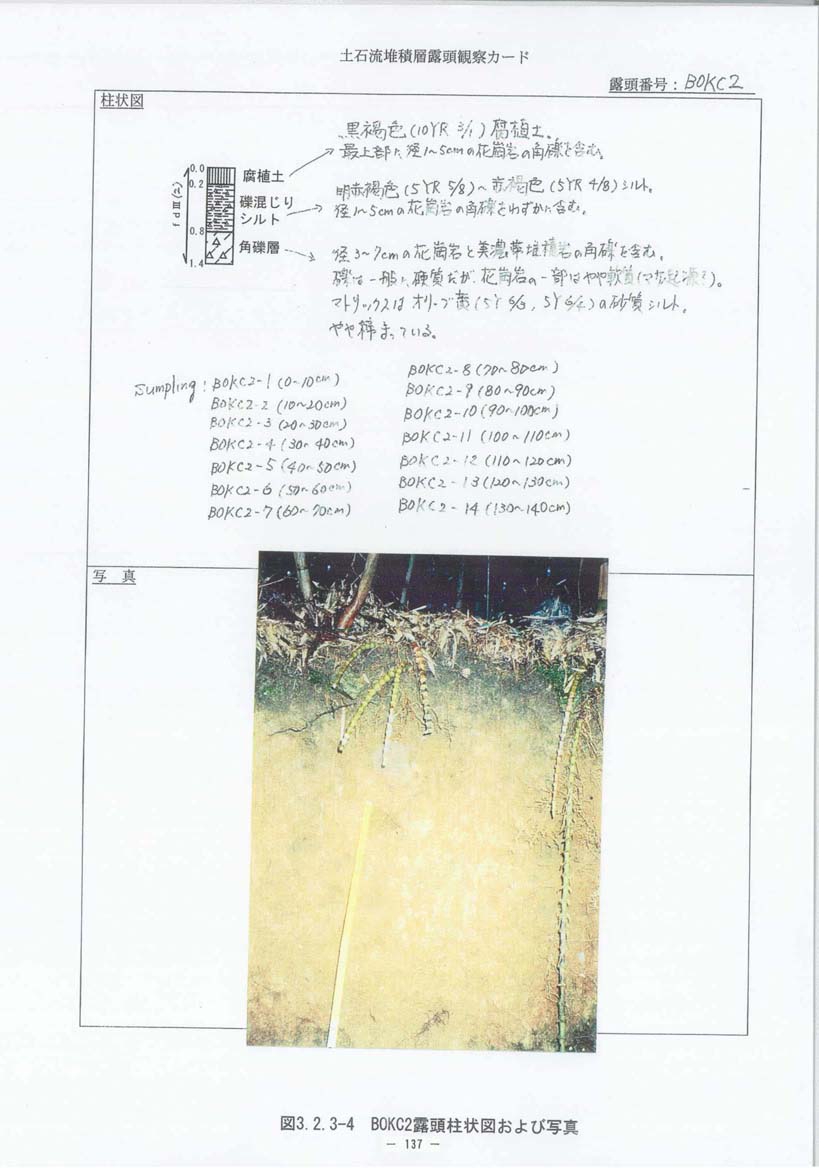 土石流堆積層露頭観察カード
露頭番号：BOKC2
柱状図
黒褐色(10YR 3/1)腐植土。
最上部に径1~5cmの花崗岩の角礫を含む。
0.0
0.2
0.8
1.4
fdⅢ(2)
腐植土
礫混じり
シルト
角礫層
明赤褐色(5YR 5/8)~赤褐色(5YR 4/8)シルト。
径1~5cmの花崗岩の角礫をわずかに含む。
径3~7cmの花崗岩と美濃帯堆積岩の角礫を含む。
礫は一般に硬質だが、花崗岩の一部はやや軟質
マトリックスはオリーブ黄(5Y 6/3, 5Y 6/4)の砂質シルト。
やや締まっている。
Sumpling: BOKC2-1 (0~10cm)
BOKC2-2 (10~20cm)
BOKC2-3 (20~30cm)
BOKC2-4 (30~40cm)
BOKC2-5 (40~50cm)
BOKC2-6 (50~60cm)
BOKC2-7 (60~70cm)
BOKC2-8 (70~80cm)
BOKC2-9 (80~90cm)
BOKC2-10 (90~100cm)
BOKC2-11 (100~110cm)
BOKC2-12 (110~120cm)
BOKC2-13 (120~130cm)
BOKC2-14 (130~140cm)
写 真
図3.2.3-4 BOKC2露頭柱状図および写真
- 137 -